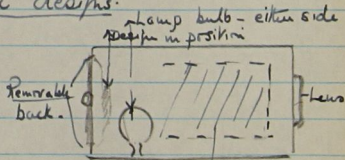 designs.
Lamp bulb - either side
Design in position
Removable
back.
Lens